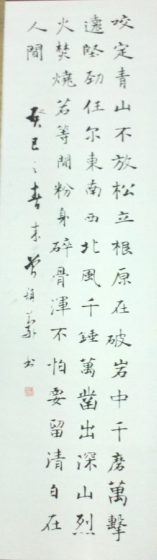 咬定青山不放松立根原在破岩中千磨萬擊
還堅劲任尔東南西北風千錘萬鑿出深山烈
火焚燒若等閒粉身碎骨渾不怕要留清白在
人間
癸巳之春末
書